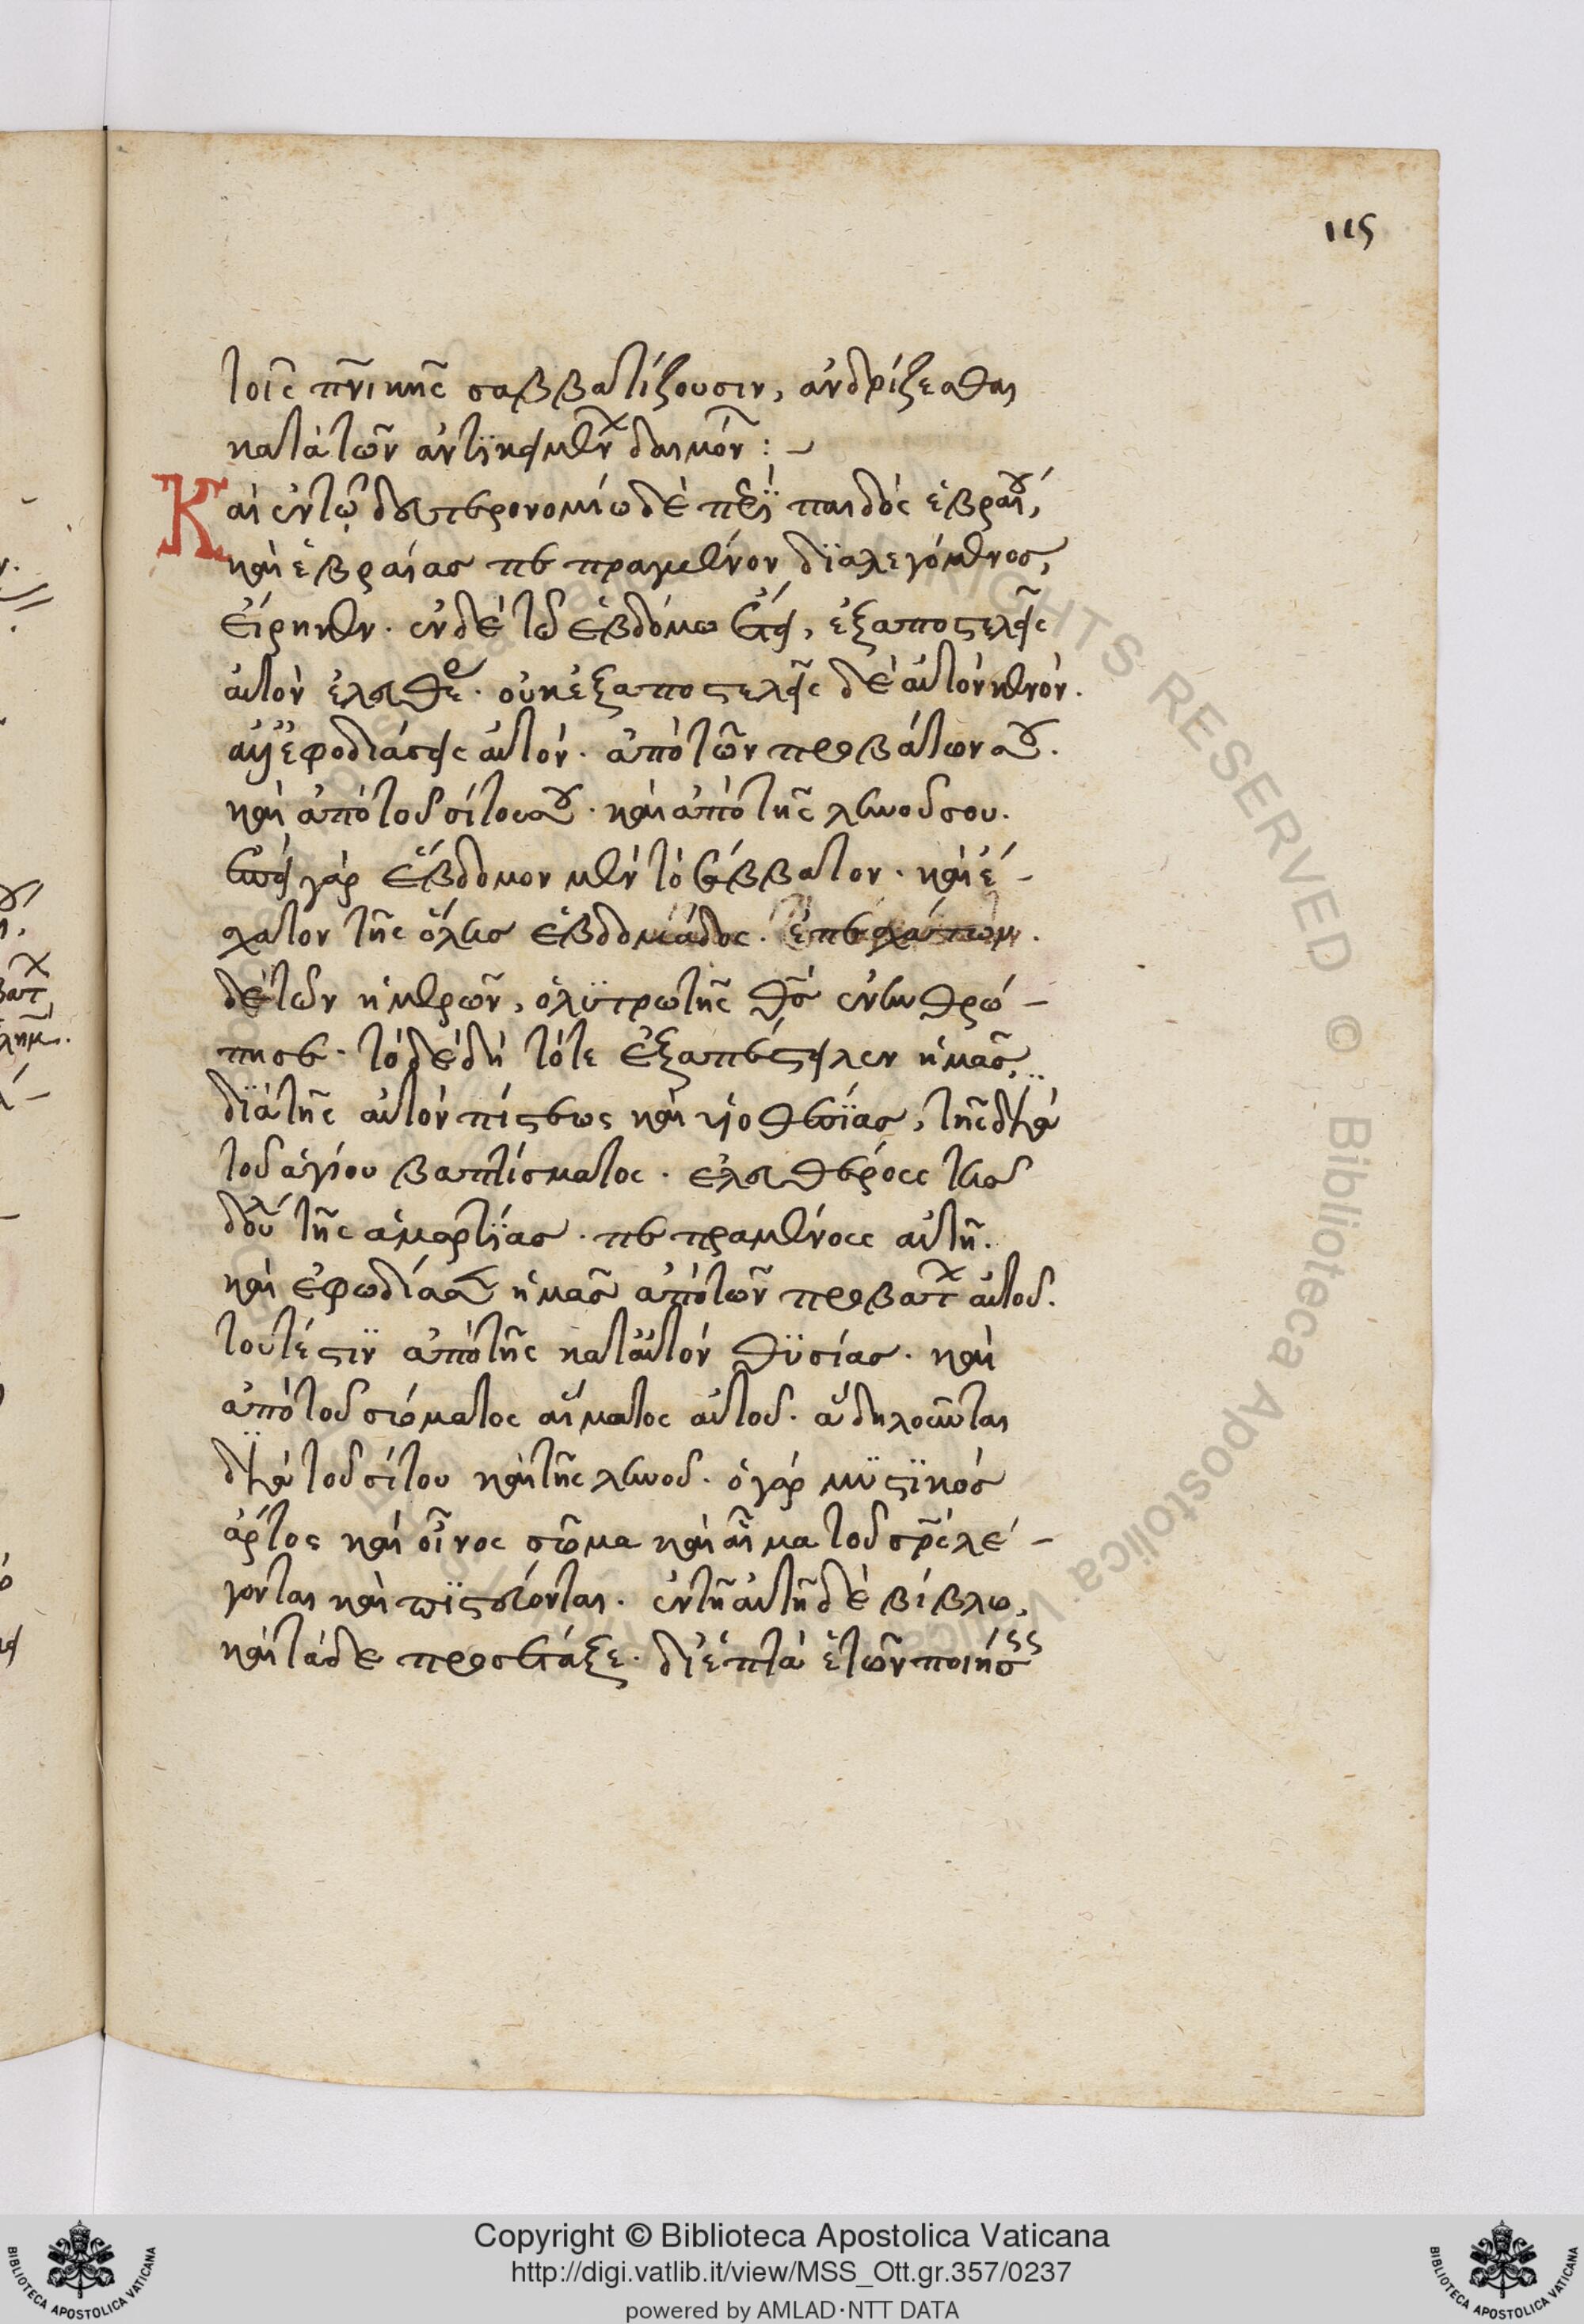 115
τοῖς πν̅ικῆς σαββατίζουσιν, ἀνδρίζεσθαι
κατὰ τῶν ἀντικειμέν δαιμόν : –
Καὶ ἐν τῷ δευτερονομίω δὲ περὶ παιδὸς ἑβραίου,
καὶ ἑβραίας πεπραμένον διαλεγόμενος,
εἴρηκεν · ἐν δὲ τῶ ἑβδόμω ἔτει, ἐξαποστελεῖς
αὐτὸν ἐλεύθε · οὐκ ἐξαποστελεῖς δὲ αὐτὸν κενόν .
ἀλλ' ἐφοδιάσεις αὐτόν · ἀπὸ τῶν προβάτων σου .
καὶ ἀπὸ τοῦ σίτου σου · καὶ ἀπὸ τῆς ληνοῦ σου .
ἐπεὶ γὰρ ἕβδομον μὲν τὸ σάββατον · καὶ ἔ –
σχατον τῆς ὅλης ἑβδομάδος · ἐπ' ἐσχάτων .
δὲ τῶν ἡμερῶν, ὁ λυτρωτὴς θς ἐνηνθρώ –
πησε · τὸ δὲ δὴ τότε ἐξαπέστειλεν ἡμᾶς,
διὰ τῆς αὐτὸν πίστεως καὶ υἱοθεσίας, τῆς διὰ
τοῦ ἁγίου βαπτίσματος · ἐλευθέρους τῆς
δου τῆς ἁμαρτίας · πεπραμένους αὐτῆ .
καὶ ἐφωδίασεν ἡμᾶς ἀπὸ τῶν προβατ αὐτοῦ .
τουτέστιν ἀπὸ τῆς κατ' αὐτὸν θυσίας · καὶ
ἀπὸ τοῦ σώματος αἵματος αὐτοῦ · ἃ δηλοῦνται
διὰ τοῦ σίτου καὶ τῆς ληνοῦ · ὁ γὰρ μυστικὸς
ἄρτος καὶ οἶνος σῶμα καὶ αἷμα τοῦ σρ̅ς λέ –
γονται καὶ πιστεύονται · ἐν τῆ αὐτῆ δὲ βίβλω,
καὶ τάδε προσέταξε · δι' ἑπτὰ ἐτῶν ποιήσεις
Copyright © Biblioteca Apostolica Vaticana
http://digi.vatlib.it/view/MSS_Ott.gr.357/0237
powered by AMLAD·NTT DATA